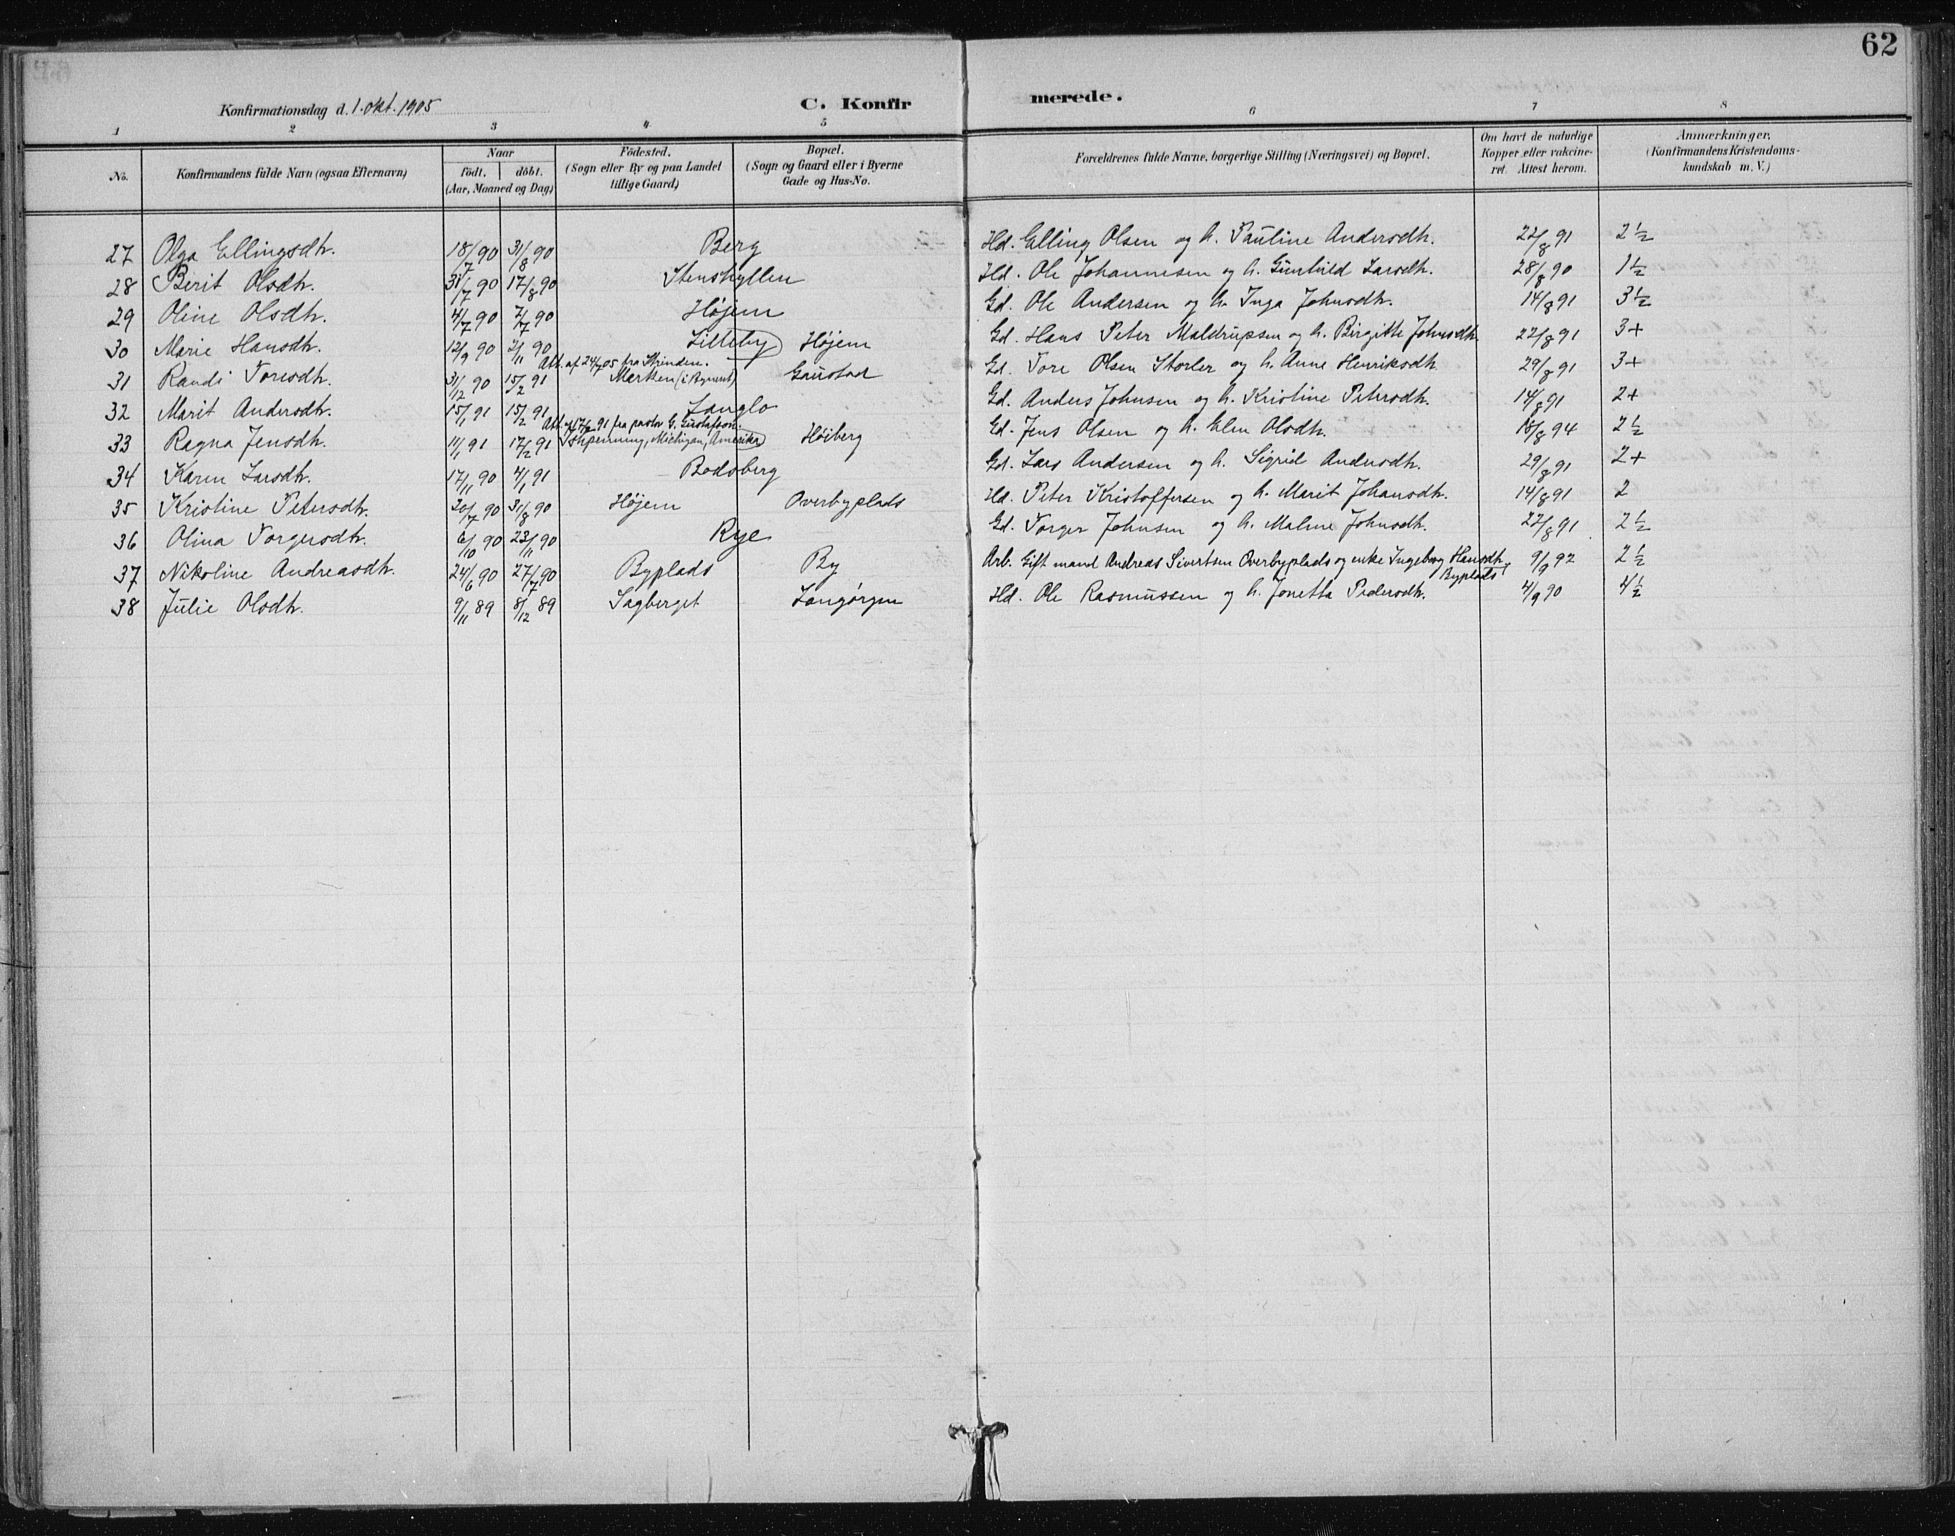 62
Konfirmationsdag d. 1. okt. 1905 C. Konfirmerede.
1 2 3 4 5 6 7 8
No. Konfirmandens fulde Navn (ogsaa Efternavn) Naar födt. döbt. (Aar, Maaned og Dag) Födested. (Sogn eller By og paa Landet tillige Gaard) Bopæl. (Sogn og Gaard eller i Byerne Gade og Hus-No. Forældrenes fulde Navne, borgerlige Stilling (Næringsvei) og Bopæl. Om havt de naturlige Kopper eller vakcineret. Attest herom. Anmærkninger. (Konfirmandens Kristendomskundskab m. V.)
27 Olga Ellingsdtr. 18/7 90 31/8 90 Berg Hd. Elling Olsen og h. Pauline Andersdtr. 22/8 91 2½
28 Berit Olsdtr. 31/7 90 17/8 90 Stenshyllen Hd. Ole Johannesen og h. Gunhild Larsdtr. 28/8 90 1½
29 Oline Olsdtr. 4/7 90 7/7 90 Höjem Gd. Ole Andersen og h. Inga Johnsdtr. 14/8 91 3½
30 Marie Hansdtr. 12/9 90 2/11 90 Lilleby Höjem Gd. Hans Peter Maldrupsen og h. Birgitte Johnsdtr. 22/8 91 3+
Att. af 24/7 05 fra Strinden.
31 Randi Toresdtr. 31/12 90 15/2 91 Merken (i Bynent) Gaustad Gd. Tore Olsen Storler og h. Anne Henriksdtr. 29/8 91 3+
32 Marit Andersdtr. 15/1 91 15/2 91 Langlo Gd. Anders Johnsen og h. Kristine Petersdtr. 14/8 91 2+
Att. af 17/2 91 fra pastor G. Gustafson.
33 Ragna Jensdtr. 11/1 91 17/2 91 Ishpenning, Michigan, Amerika Höiberg Gd. Jens Olsen og h. Elen Olsdtr. 18/8 94 2½
34 Karen Larsdtr. 17/11 90 4/1 91 Bodsberg Gd. Lars Andersen og h. Sigrid Andersdtr. 29/8 91 2+
35 Kristine Petersdtr. 20/7 90 31/8 90 Höjem Overbyplads Hd. Peter Kristoffersen og h. Marit Johansdtr. 14/8 91 2
36 Olina Torgersdtr. 6/10 90 23/11 90 Rye Gd. Torger Johnsen og h. Malene Johnsdtr. 22/8 91 2½
37 Nikoline Andreasdtr. 24/6 90 27/7 90 Byplads By Arb. Gift mand Andreas Sivertsen Overbyplads og enke Ingeborg Hansdtr. Byplads 9/9 92 2½
38 Julie Olsdtr. 9/11 89 8/12 89 Sagberget Langörgen Hd. Ole Rasmussen og h. Jonetta Pedersdtr. 4/9 90 4½